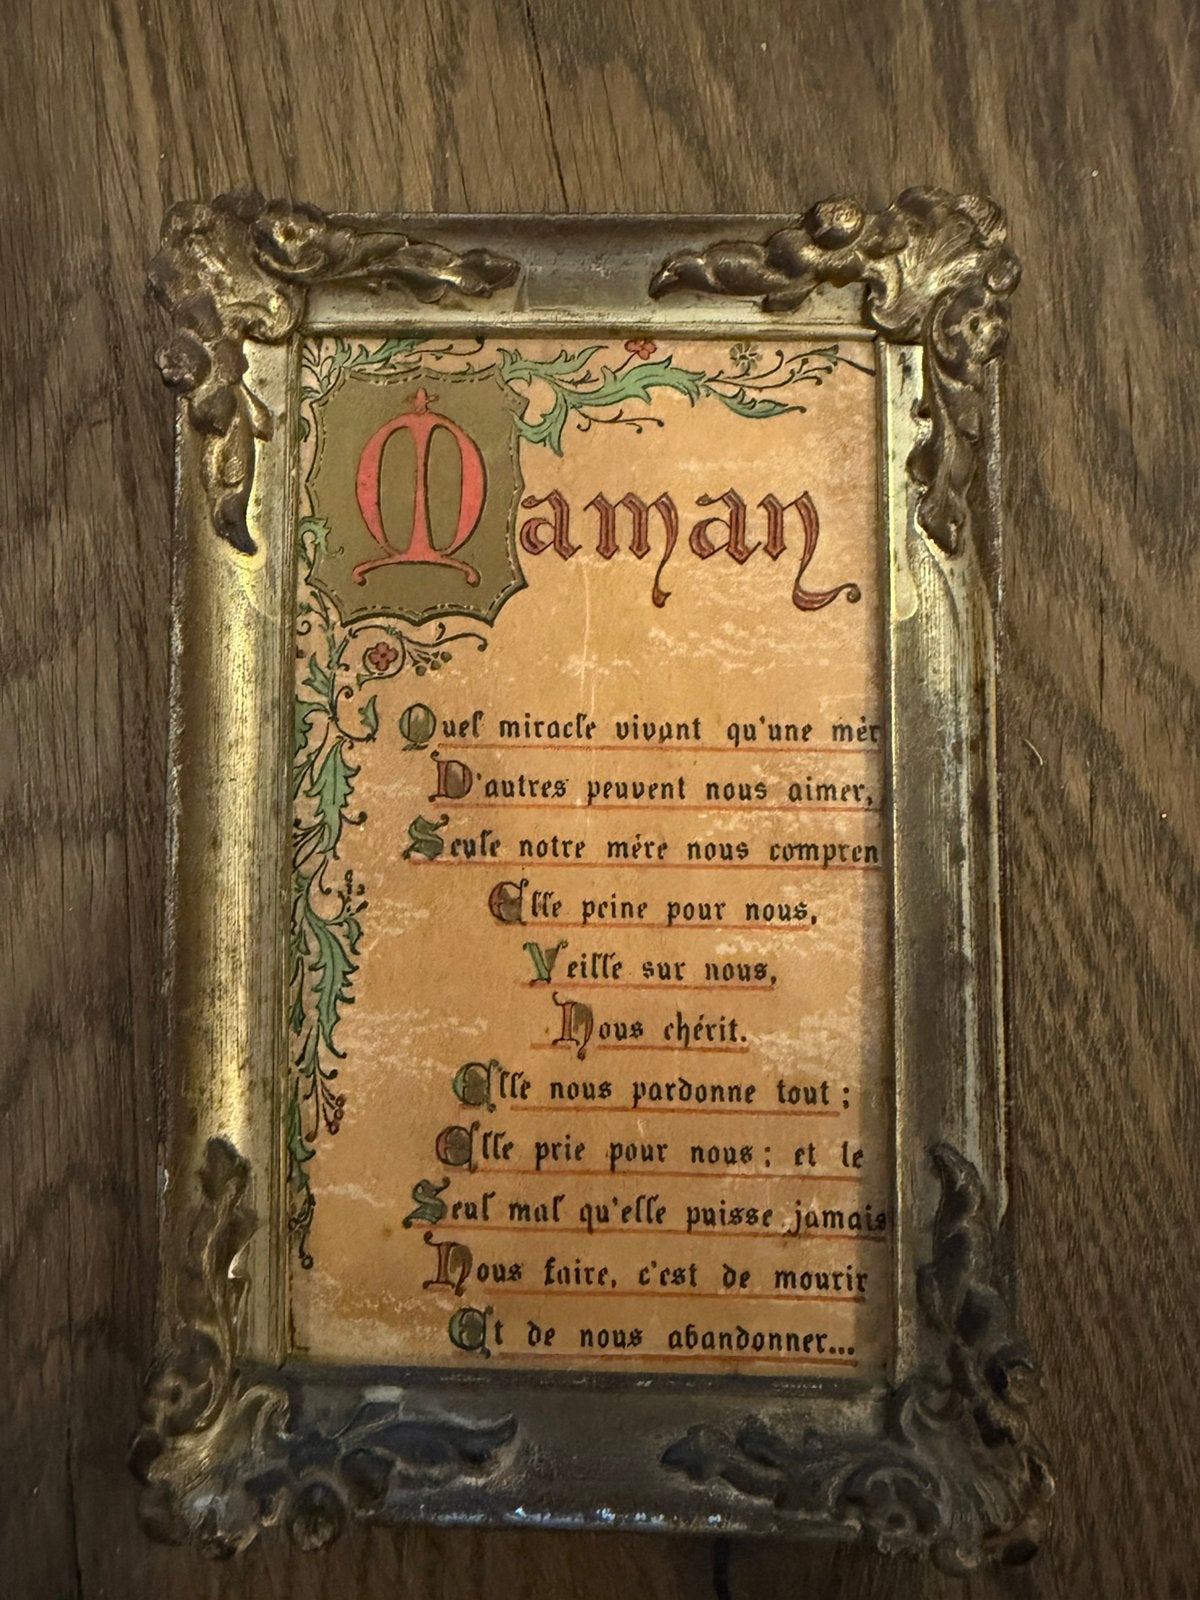 Maman
Quel miracle vivant qu'une mèr
D'autres peuvent nous aimer,
Seule notre mère nous compren
Elle peine pour nous,
Veille sur nous,
Nous chérit.
Elle nous pardonne tout ;
Elle prie pour nous ; et le
Seul mal qu'elle puisse jamais
Nous faire, c'est de mourir
Et de nous abandonner...